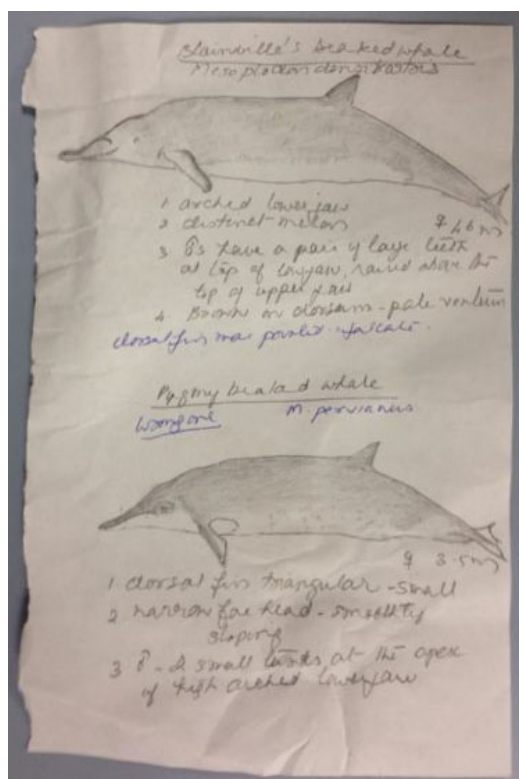 Blainville's beaked whale
Mesoplodon densirostris
1 arched lower jaw
2 distinct melon
♀ 4.6 m
3 ♂s have a pair of large teeth
at top of lowjaw, raised above the
top of upper jaw
4. Brown on dorsum - pale ventrum
dorsal fin more pointed - falcate.
Pygmy beaked whale
M. peruvianus
♀ 3.5m
1 dorsal fin triangular - small
2 narrow forehead - smoothly
sloping
3 ♂ - 2 small tusks at the apex
of high arched lower jaw